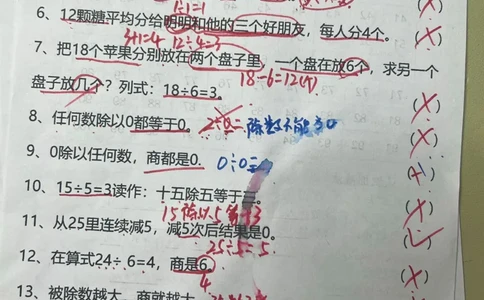 1÷1=1
6、12颗糖平均分给明明和他的三个好朋友，每人分4个。 (×)
3+1=4 12÷4=3
7、把18个苹果分别放在两个盘子里，一个盘在放6个，求另一个 (×)
18-6=12(个)
盘子放几个？列式：18÷6=3。
8、任何数除以0都等于0。 2÷0= 除数不能为0 (×)
9、0除以任何数，商都是0. 0÷0=
10、15÷5=3读作：十五除五等于三。 (×)
15除以5等于3
11、从25里连续减5，减5次后结果是0。 (√)
25÷5=5
12、在算式24÷6=4，商是6. (×)
4
13、被除数越大，商就越大